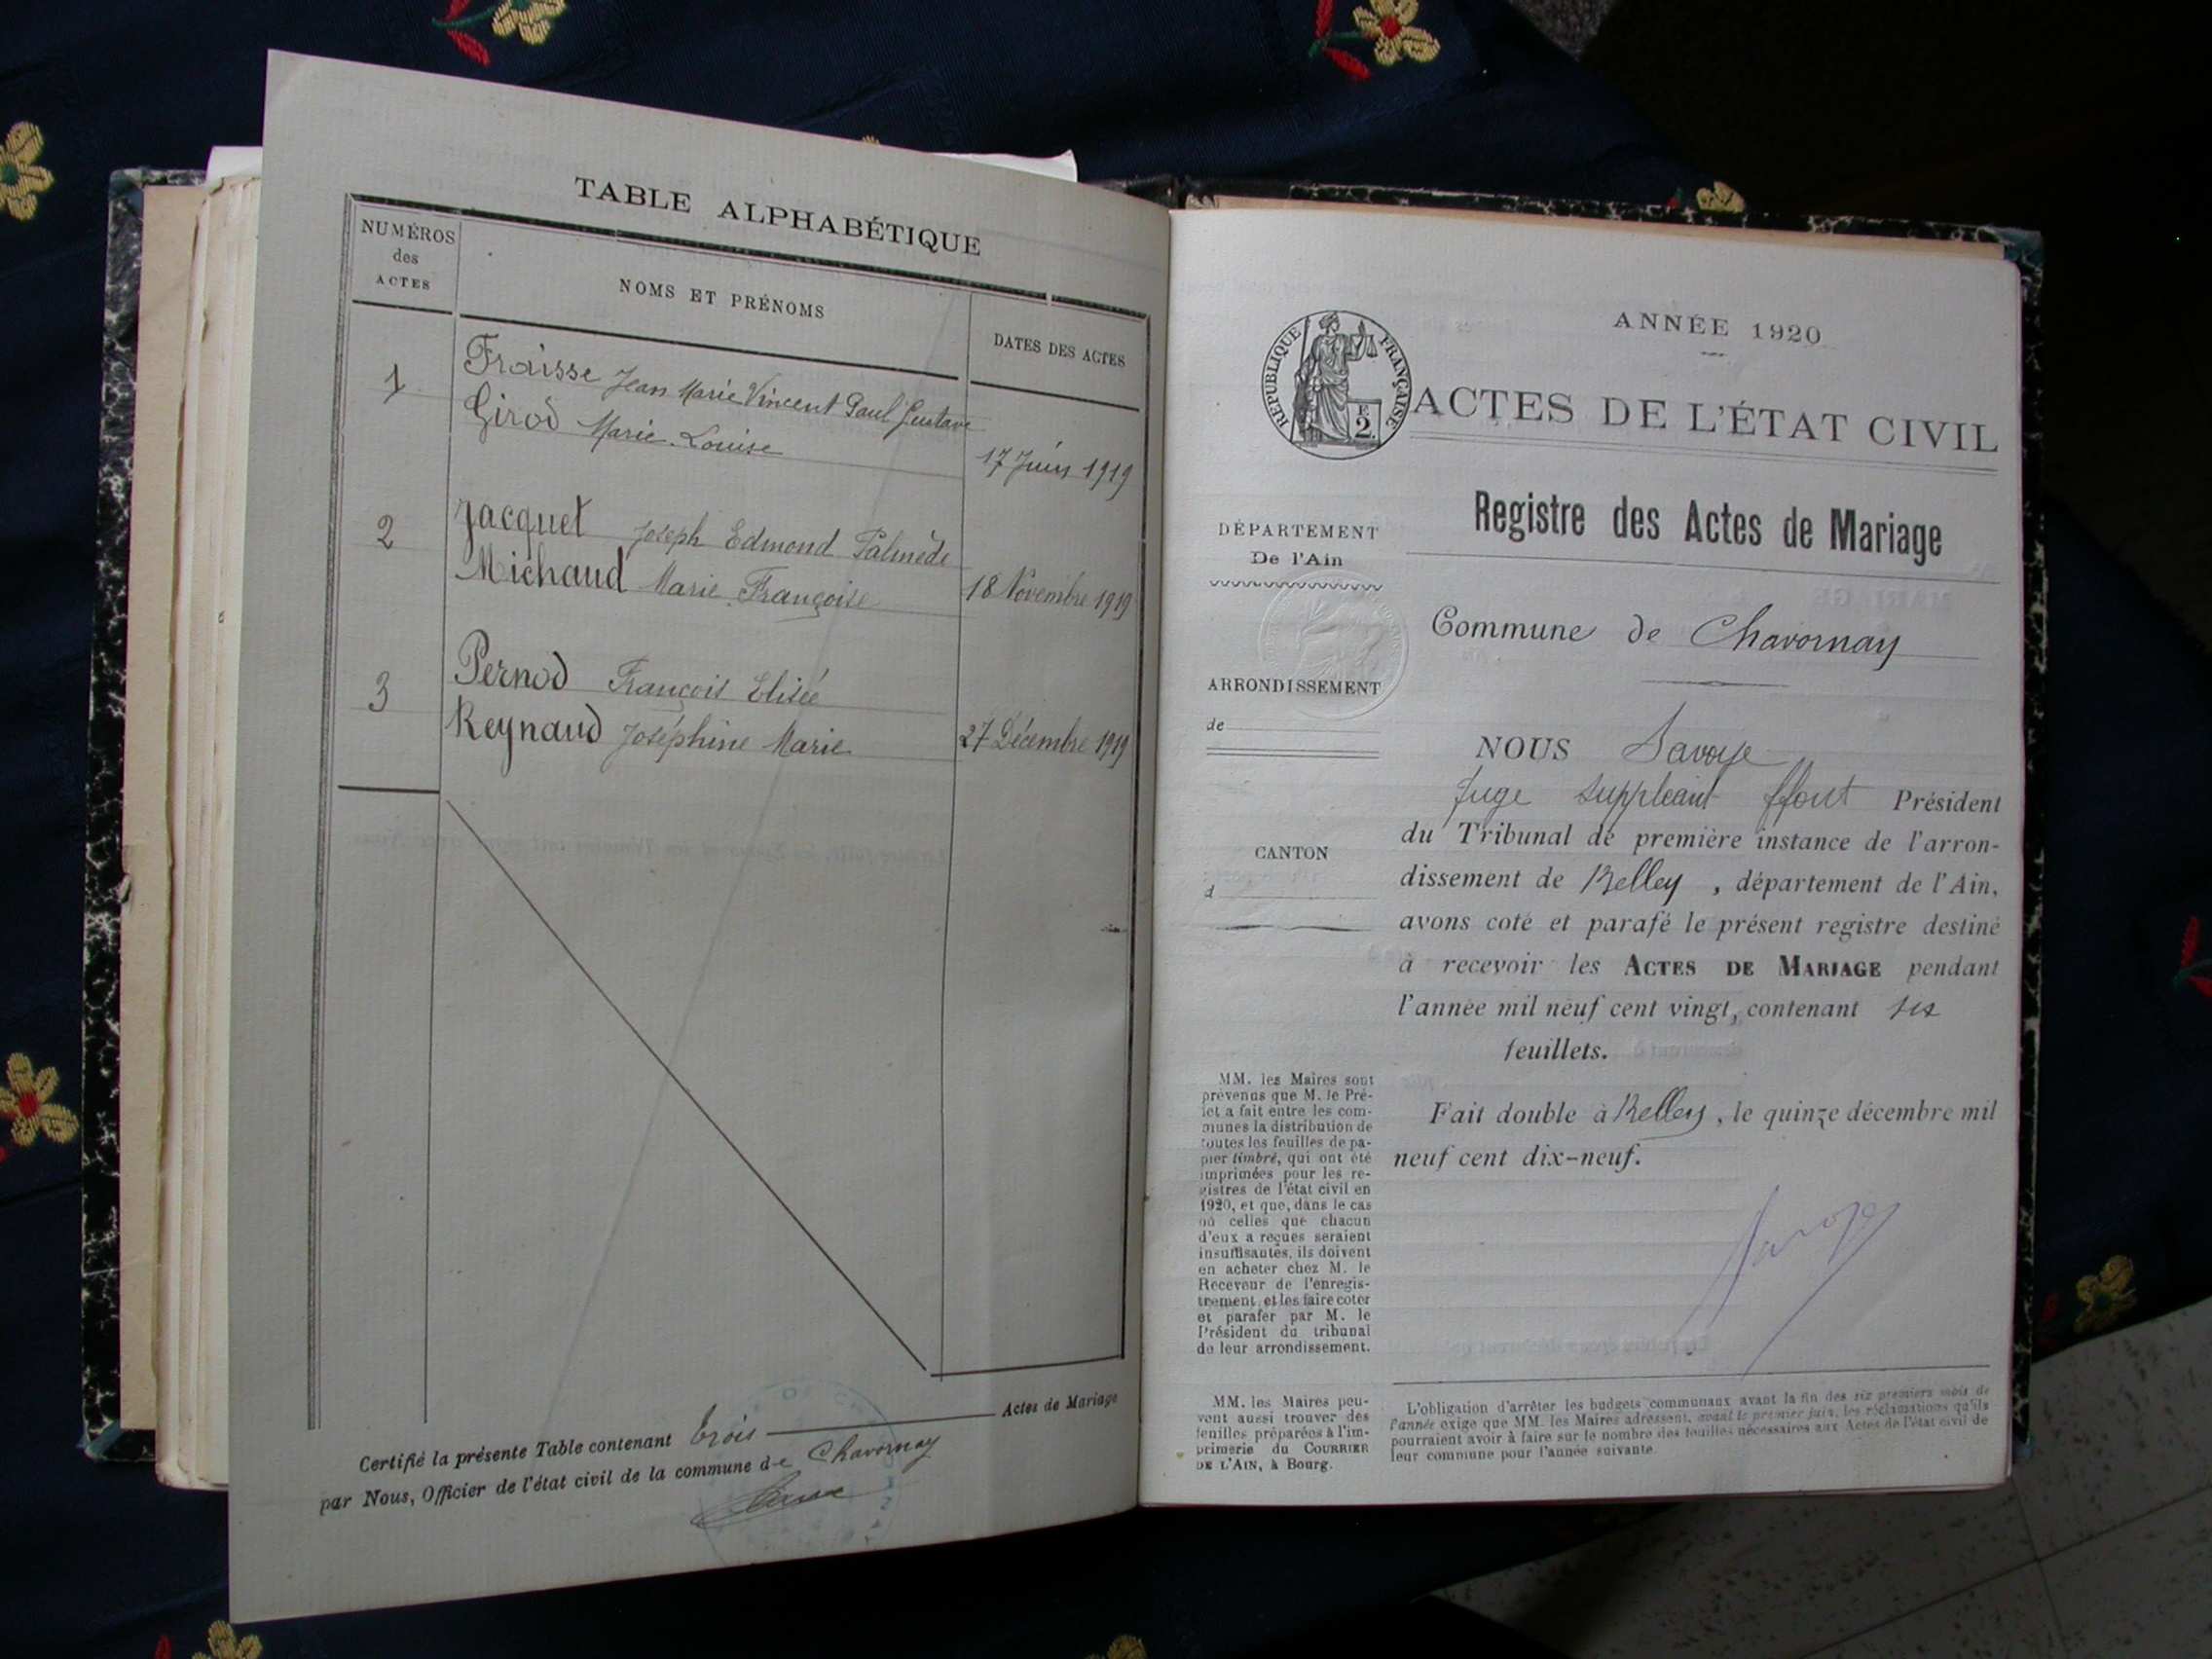 TABLE ALPHABÉTIQUE
NUMÉROS
des
ACTES
NOMS ET PRÉNOMS
DATES DES ACTES
1
Fraisse Jean Marie Vincent Paul Gustave
Girod Marie Louise
17 Juin 1919
2
Jacquet Joseph Edmond Palmède
Michaud Marie Françoise
18 Novembre 1919
3
Pernod François Elisée
Reynaud Joséphine Marie
27 Décembre 1919
Certifié la présente Table contenant trois Actes de Mariage
par Nous, Officier de l'état civil de la commune de Chavornay
ANNÉE 1920
RÉPUBLIQUE FRANÇAISE
E
2.
ACTES DE L'ÉTAT CIVIL
Registre des Actes de Mariage
DÉPARTEMENT
De l'Ain
Commune de Chavornay
ARRONDISSEMENT
de
CANTON
d
NOUS Savoye
Juge suppléant ffont Président
du Tribunal de première instance de l'arron-
dissement de Belley, département de l'Ain,
avons coté et parafé le présent registre destiné
à recevoir les ACTES DE MARIAGE pendant
l'année mil neuf cent vingt, contenant six
feuillets.
Fait double à Belley, le quinze décembre mil
neuf cent dix-neuf.
Savoye
MM. les Maires sont
prévenus que M. le Pré-
fet a fait entre les com-
munes la distribution de
toutes les feuilles de pa-
pier timbré, qui ont été
imprimées pour les re-
gistres de l'état civil en
1920, et que, dans le cas
où celles que chacun
d'eux a reçues seraient
insuffisantes, ils doivent
en acheter chez M. le
Receveur de l'enregis-
trement, et les faire coter
et parafer par M. le
Président du tribunal
de leur arrondissement.
MM. les Maires peu-
vent aussi trouver des
feuilles préparées à l'im-
primerie du COURRIER
DE L'AIN, à Bourg.
L'obligation d'arrêter les budgets communaux avant la fin des six premiers mois de
l'année exige que MM. les Maires adressent, avant le premier juin, les réclamations qu'ils
pourraient avoir à faire sur le nombre des feuilles nécessaires aux Actes de l'état civil de
leur commune pour l'année suivante.